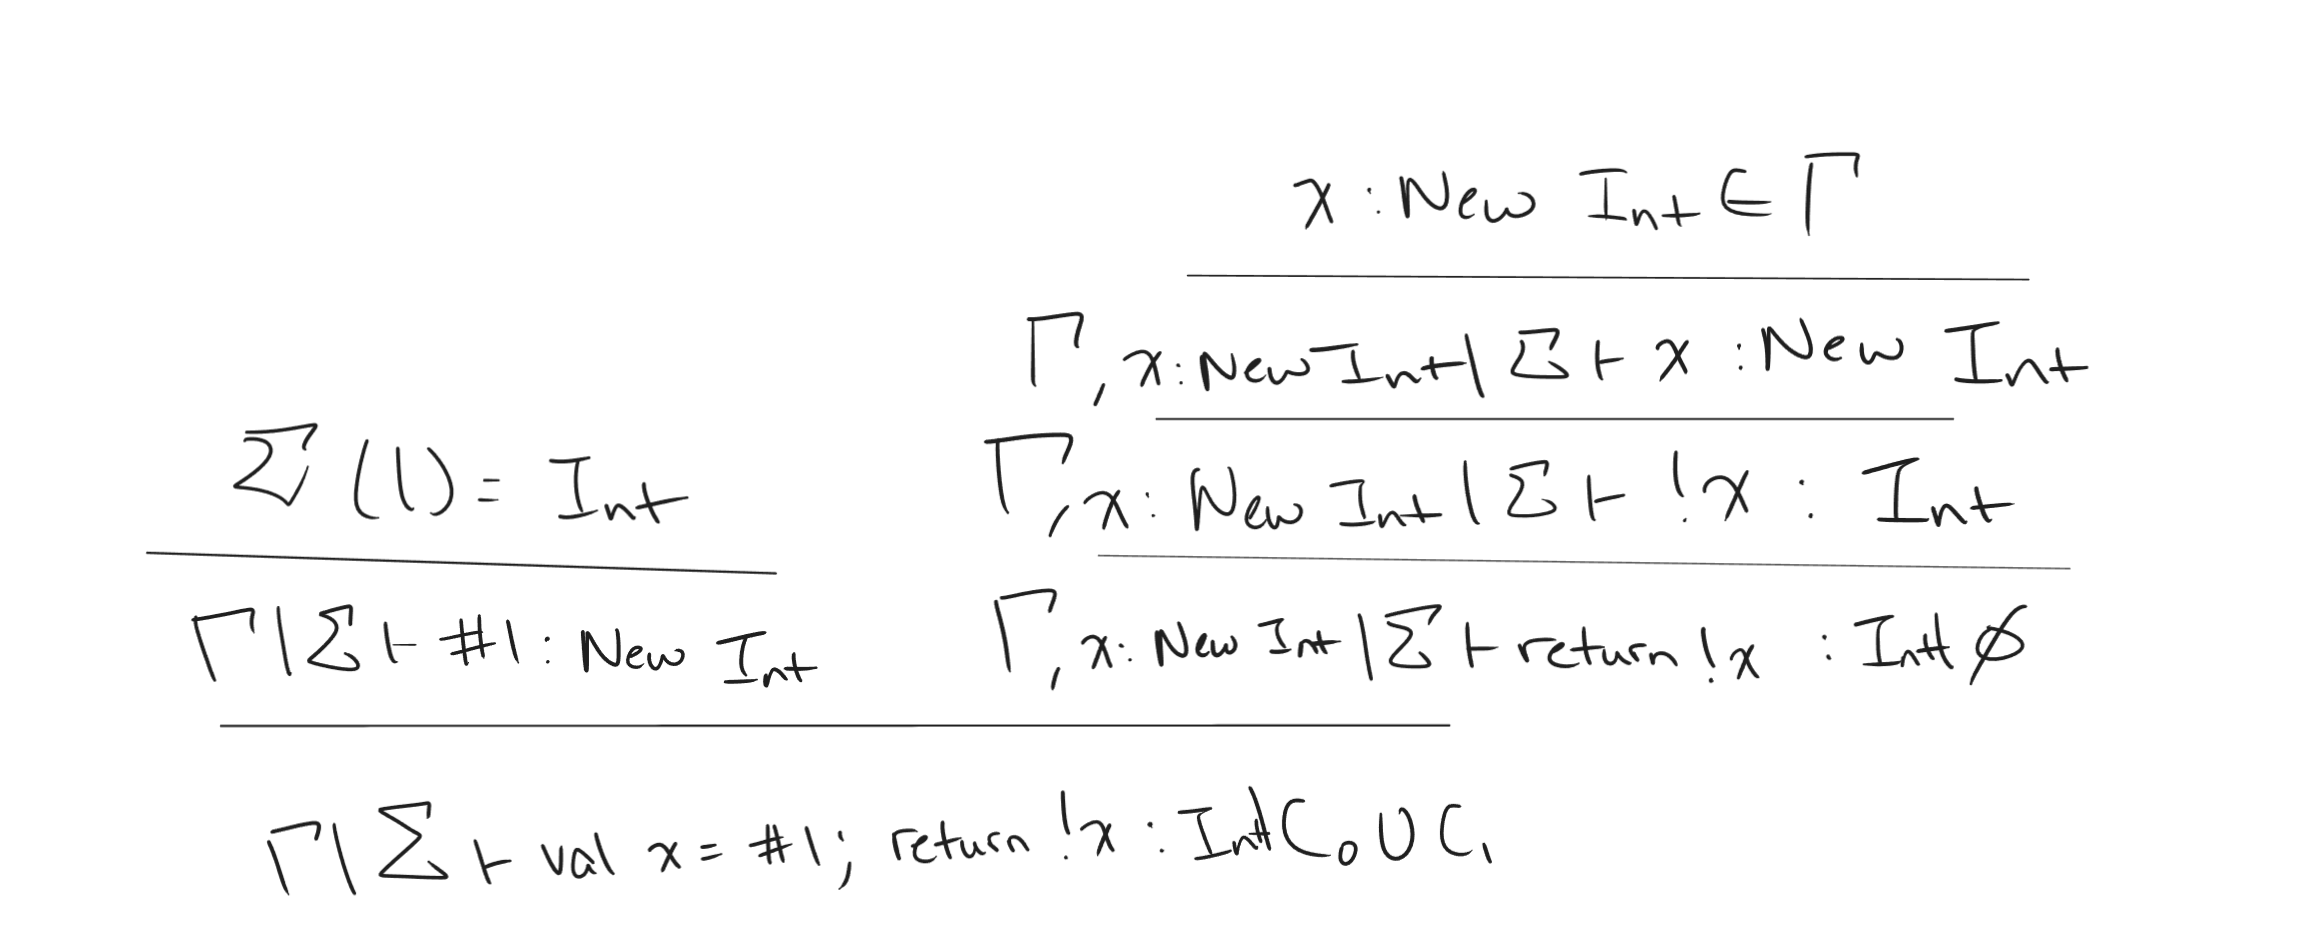 x : New Int ∈ Γ
Γ, x : New Int | Σ ⊢ x : New Int
Σ(l) = Int
Γ, x : New Int | Σ ⊢ !x : Int
Γ | Σ ⊢ #l : New Int
Γ, x : New Int | Σ ⊢ return !x : Int | ∅
Γ | Σ ⊢ val x = #l; return !x : Int | C₀ ∪ C₁